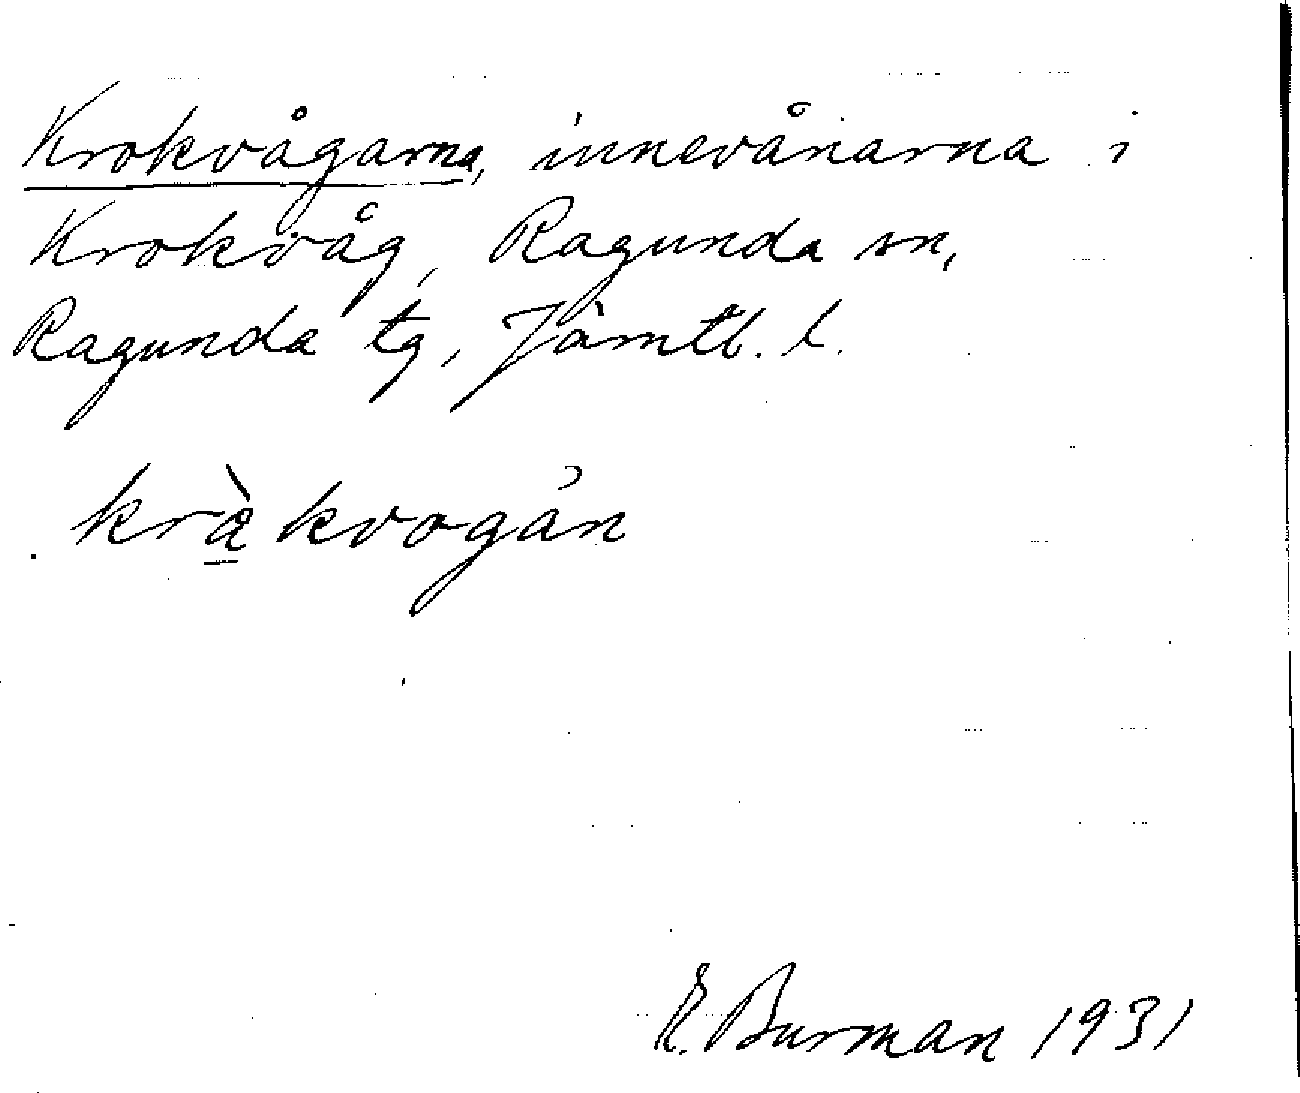 Krokvågarna, innevånarna i
Krokvåg, Ragunda sn,
Ragunda tg, Jämtl. l.
kràkvogån
E. Burman 1931